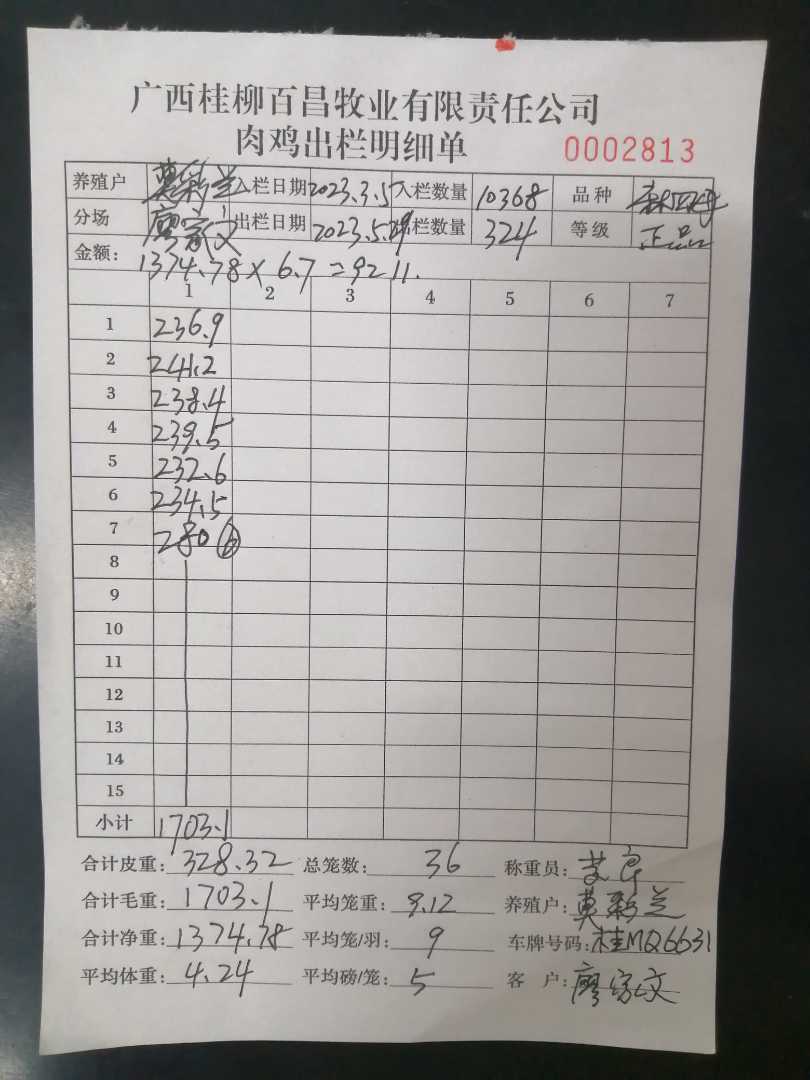 广西桂柳百昌牧业有限责任公司
肉鸡出栏明细单 0002813
养殖户 莫彩兰 入栏日期 2023.3.5 入栏数量 10368 品种
分场 廖家文 出栏日期 2023.5.29 出栏数量 324 等级 正品
金额: 1374.78 × 6.7 = 9211.
1 2 3 4 5 6 7
1 236.9
2 241.2
3 238.4
4 239.5
5 232.6
6 234.5
7 280 ⑥
8
9
10
11
12
13
14
15
小计 1703.1
合计皮重: 328.32 总笼数: 36 称重员:
合计毛重: 1703.1 平均笼重: 9.12 养殖户: 莫彩兰
合计净重: 1374.78 平均笼/羽: 9 车牌号码: 桂MQ6631
平均体重: 4.24 平均磅/笼: 5 客户: 廖家文